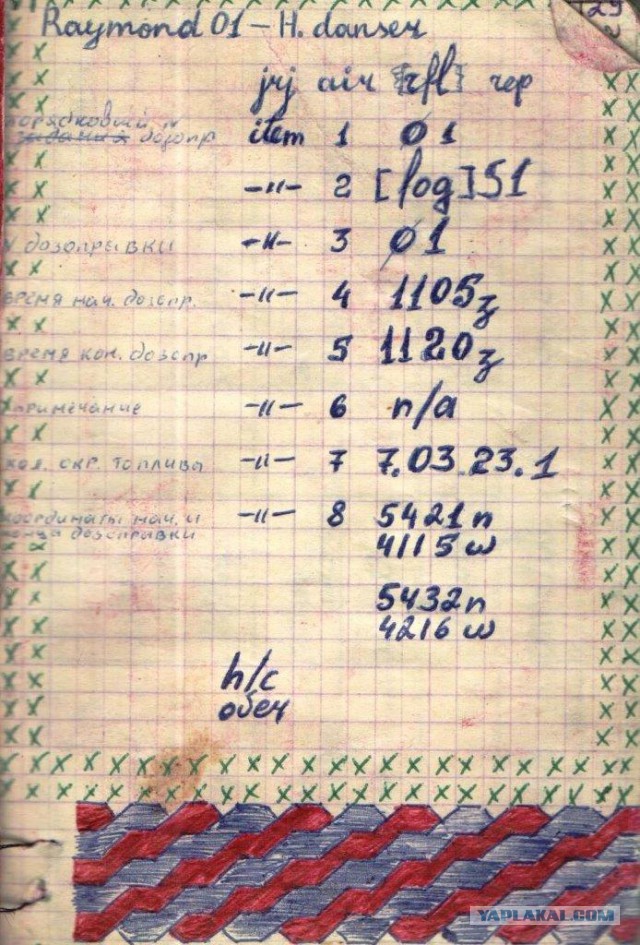 29
Raymond 01 – H. danser
jrj air [rfl] rep
порядковый N
задания дозопр item 1 Ø1
–"– 2 [log]51
N дозаправки –"– 3 Ø1
время нач. дозапр. –"– 4 1105z
время кон. дозапр –"– 5 1120z
примечание –"– 6 n/a
кол. скр. топлива –"– 7 7.03.23.1
координаты нач. и –"– 8 5421n
конца дозаправки 4115w
5432n
4216w
h/c
обеч
YAPLAKAL.COM